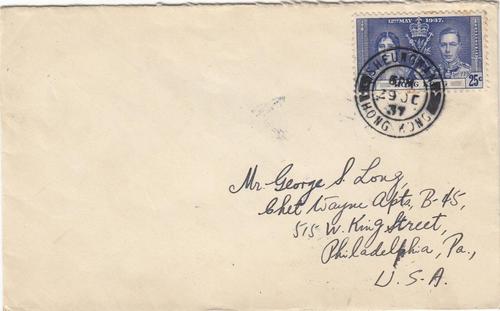 12TH MAY 1937.
HONG KONG
25c
SHEUNG
29 OC
37
HONG KONG
Mr. George S. Long,
Chet Wayne Apts, B-45,
515 W. King Street,
Philadelphia, Pa.,
U.S.A.